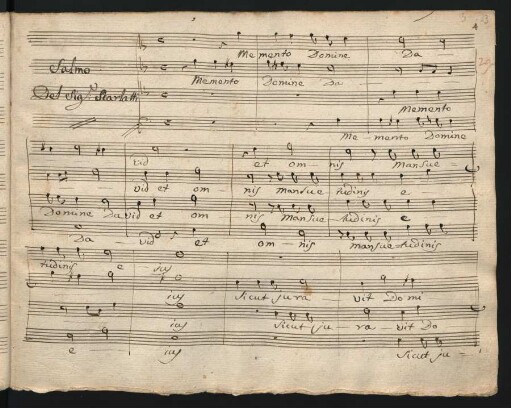 4
Memento Domine Da
Salmo
Memento Domine Da
Del Sig.r Scarlatti
Memento
Memento Domine
vid et omnis mansue
vid et omnis mansuetudinis e
Domine David et omnis mansuetudinis e
David et omnis mansuetudinis
tudinis e ius
ius Sicut jura vit Domi
ius Sicut jura vit Do
e ius Sicut ju